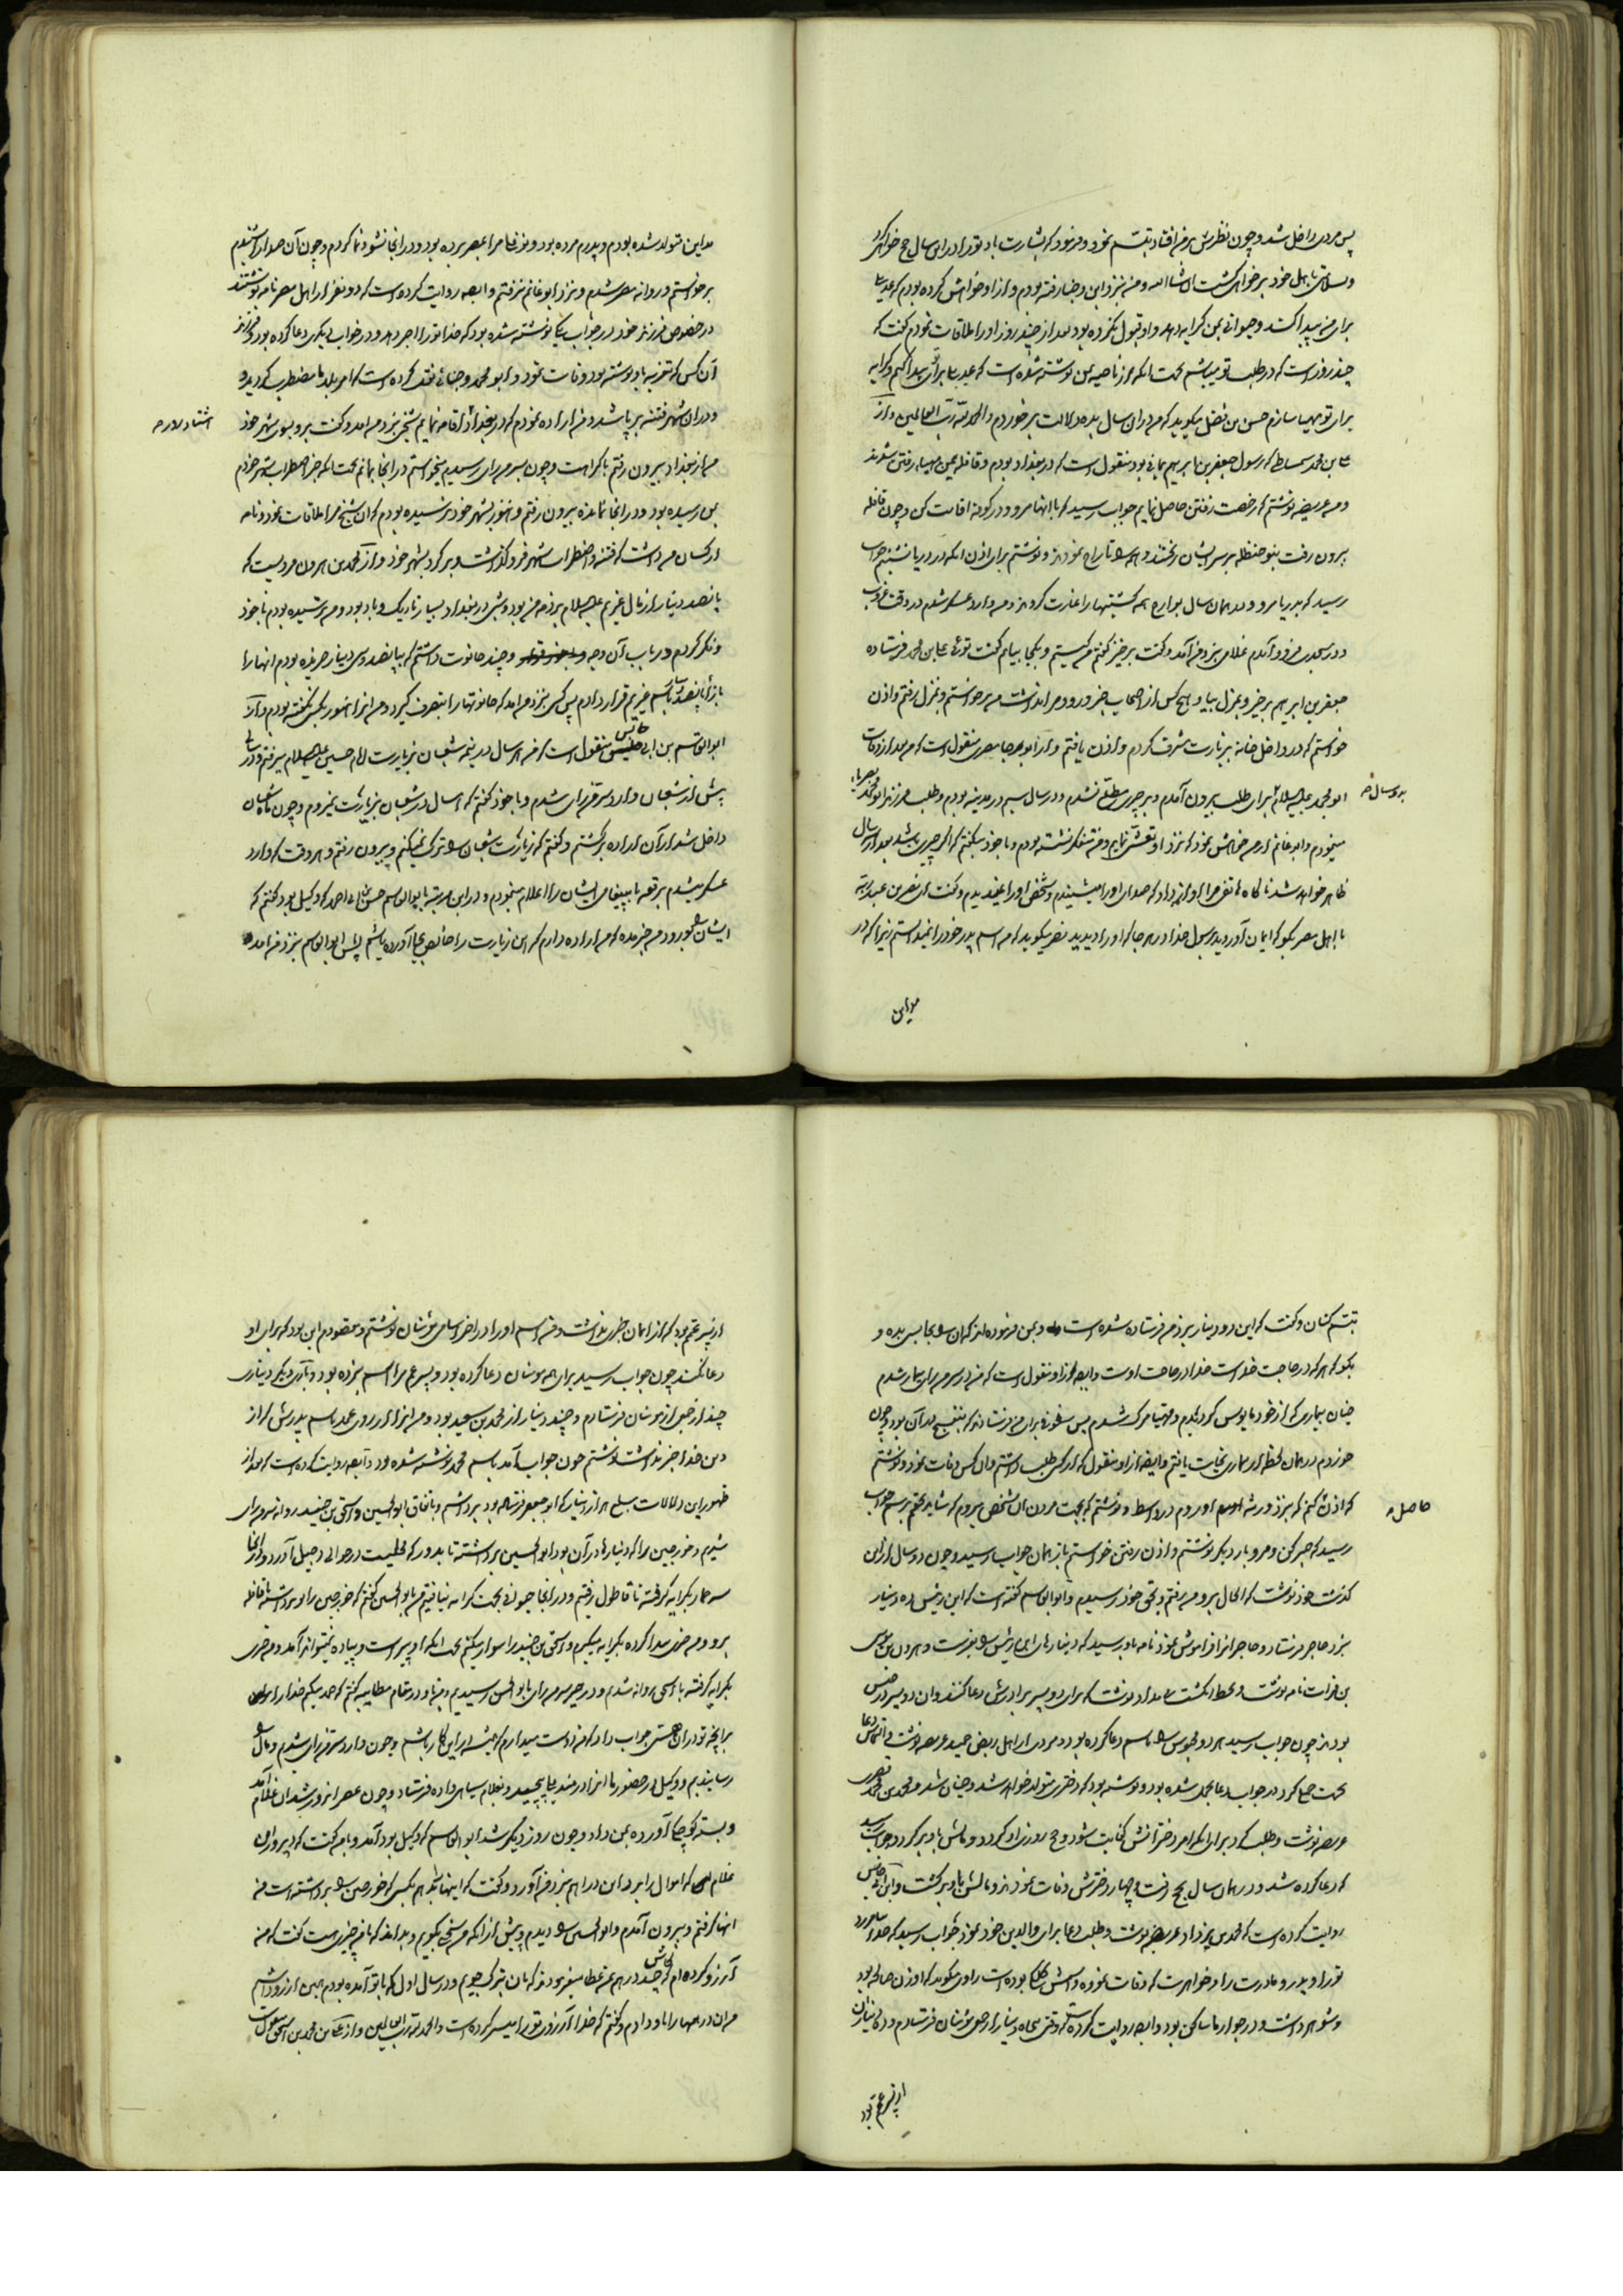 پس مردی داخل شد و چون نظرش بر من افتاد تبسّم نمود و فرمود که بشارت باد تو را در این سال حج خواهی کرد
و بسلامتی باهل خود برخواهی گشت ان شاء الله و من بنزد ابن وجنا رفته بودم و از او خواهش کرده بودم که
برای من پیدا کند و حیوانی بمن کرایه دهد و او قبول نکرده بود بعد از چند روز او را ملاقات نمودم گفت که
چند روز است که در طلب تو میباشم بجهت آنکه از ناحیه بمن نوشته شده است که برای پیدا کنم و کرایه
برای تو مهیا سازم حسن بن فضل میگوید که من در این سال بده دلالت برخوردم والحمد لله رب العالمین و از
علی بن محمد که رسول جعفر بن ابراهیم یمانی بود منقول است که در بغداد بودم و قافله یمن مهیای رفتن شدند
و من عریضه نوشتم که رخصت رفتن حاصل نمایم جواب رسید که با آنها مرو و در کوفه اقامت کن و چون قافله
بیرون رفت بنو حنظله بر سر ایشان ریختند و همه را تاراج نمودند و نوشتم برای اذن آنکه در دریا نشینم جواب
رسید که بدریا مرو و در همان سال بوارح همه کشتیها را غارت کردند و من وارد عسکر شدم در وقت غروب
و در مسجدی فرود آمدم غلامی بنزد من آمد و گفت برخیز گفتم من کیستم و بکجا بیایم گفت توئی علی بن محمد فرستاده
جعفر بن ابراهیم برخیز و بمنزل بیا و هیچ کس از اصحاب خبر ورود مرا نداشت من برخواستم و بمنزل رفتم و اذن
خواستم که در داخل خانه بزیارت مشرف گردم و اذن یافتم و از ابو رجا مصری منقول است که من بعد از وفات
ابو محمد علیه السلام برای طلب بیرون آمدم و بر چیزی مطلع نشدم و در سال سیم در مدینه بودم و طلب فرزند ابو محمد
مینمودم و ابو غانم از من خواهش نمود که نزد او تعشّی نمایم و من متفکر نشسته بودم و با خود میگفتم که اگر چیزی باشد بعد از سه سال
ظاهر خواهد شد ناگاه هاتفی مرا آواز داد که صدای او را میشنیدم و شخص او را نمیدیدم و گفت ای نصر بن عبد ربّه
با اهل مصر بگو که ایمان آوردید برسول خدا در هر جا که او را دیدید نصر میگوید که من اسم پدر خود را نمیدانستم زیرا که در
مداین
مداین متولد شده بودم و پدرم مرده بود و نوفلی مرا بمصر برده بود و در آنجا نشو و نما کردم و چون آن صدا را شنیدم
برخواستم و روانه مصر شدم و بنزد ابو غانم نرفتم و ایضا روایت کرده است که دو نفر از اهل مصر نامه نوشتند
در خصوص فرزند خود در جواب یکی نوشته شده بود که خدا تو را اجر دهد و در جواب دیگری دعا کرده بود و فرزند
آن کس که تعزیه باو نوشته بود وفات نمود و ابو محمد وجنائی نقل کرده است که امر بلد ما مضطرب گردید
و در آن شهر فتنه بر پا شد و من اراده نمودم که در بغداد اقامه نمایم شیخی نزد من آمد و گفت برو بسوی شهر خود
من از بغداد بیرون رفتم با کراهت و چون بسر من رای رسیدم میخواستم در آنجا بمانم بجهت آنکه خبر اضطراب شهر خودم
بمن رسیده بود و در آنجا نمانده بیرون رفتم و هنوز بشهر خود نرسیده بودم که آن شیخ مرا ملاقات نمود و نامه
از کسان من داشت که فتنه و اضطراب شهر فرو گذاشت و برگرد بشهر خود و از محمد بن هرون مرویست که
پانصد دینار از مال غریم علیه السلام بر ذمه من بود و شبی در بغداد بسیار تاریک و باد بود و من ترسیده بودم با خود
فکر کردم در باب آن وجه و چند حانوت داشتم که بپانصد و سی دینار خریده بودم آنها را
بازاء پانصد دینار باسم غریم قرار دادم پس کسی بنزد من آمد که حانوتها را بتصرف گیرد و من اینرا هنوز بکسی نگفته بودم و از
ابو القاسم بن ابی حلیس منقول است که من هر سال در نیمه شعبان بزیارت امام حسین علیه السلام میرفتم و در سالی
پیش از شعبان وارد سر من رای شدم و با خود گفتم که امسال در شعبان بزیارت نمیروم و چون ماه شعبان
داخل شد از آن اراده برگشتم و گفتم که زیارت شعبان را ترک نمیکنم و بیرون رفتم و هر وقت که وارد
عسکر میشدم برقعه یا پیغامی ایشان را اعلام مینمودم و در این مرتبه بابو القاسم حسن بن احمد که وکیل بود گفتم که
ایشان را بورود من خبر مده که من اراده دارم که این زیارت را خالص بجا آورده باشم پس ابو القاسم بنزد من آمد
تبسّم کنان و گفت که این دو دینار بنزد من فرستاده شده است و بمن فرموده اند که آن را بحلیسی بده و
بگو که هر که در حاجت خداست خدا در حاجت اوست و ایضا از او منقول است که من در سر من رای بیمار شدم
چنان بیماری که از خود مایوس گردیدم و مهیای مرگ شدم پس شربتی برای من فرستادند که بنفسج در آن بود چون
خوردم در همان لحظه از بیماری نجات یافتم و ایضا از او منقول که از کسی طلب داشتم و آن کس وفات نمود و نوشتم
که اذن که بنزد ورثه او بروم در واسط و نوشتم که بجهت مردن آن شخص میروم که شاید بحقم برسم جواب
رسید که صبر کن و مرو بار دیگر نوشتم و اذن رفتن خواستم باز همان جواب رسید و چون دو سال از این
گذشت خود نوشت که الحال برو من رفتم و بحق خود رسیدم و ابو القاسم گفته است که ابن رئیس ده دینار
بنزد حاجز فرستاد و حاجز آنرا فراموش نمود نامه باو رسید که دینارهای ابن رئیس را بفرست و هرون بن موسی
بن فرات نامه نوشت و بخط انگشت بی مداد نوشت که برای دو پسر برادرش دعا کنند و آن دو پسر در حبس
بودند چون جواب رسید هر دو محبوس را باسم دعا کرده بود و مردی از اهل ربض حمید عریضه نوشت در التماس دعا
بجهت حمل که در جواب دعا بحمل شده بود و نوشته بود که دختری متولد خواهد شد و چنان شد و محمد بن محمد قصری
عریضه نوشت و طلب دعا برای آنکه امر دخترانش کفایت شود و حج روزی او گردد و مالش باو برگردد جواب رسید
که دعا کرده شد و در همان سال بحج رفت و چهار دخترش وفات نمودند و مالش باو برگشت و ابن ابی حلیس
روایت کرده است که محمد بن یزداد عریضه نوشت و طلب دعا برای والدین خود نمود جواب رسید که خدا بیامرزد
تو را و پدر و مادرت را و خواهرت که وفات نموده و اسمش کلکی بوده است راوی میگوید که او زن صالحه بود
و شوهر داشت و در جوار ما ساکن بود و ایضا روایت کرده که وقتی پنجاه دینار از جمعی مؤمنان فرستادم و ده دینار آن
از پسر عم بود
حاصل
از پسر عمّم بود که از ایمان خبری نداشت و من اسم او را در آخر اسامی مؤمنان نوشتم و مقصودم این بود که برای او
دعا نکنند چون جواب رسید برای همه مؤمنان دعا کرده بود و پسر عم مرا اسم نبرده بود و باری دیگر دیناری
چند از جمعی از مؤمنان فرستادم و چند دینار از محمد بن سعید بود و من اینرا از روی عمد باسم پدرش که از
دین خدا خبر نداشت نوشتم چون جواب آمد باسم محمد نوشته شده بود و ایضا روایت کرده است که بعد از
ظهور این دلالات مبلغ هزار دینار که ابو جعفر فرستاده بود برداشتم و باتفاق ابو الحسین و اسحق بن جنید روانه سر من رای
شدیم و خورجین را که دینارها در آن بود ابو الحسین برداشته تا بدور که محلیست در حوالی دجیل آورد و از آنجا
سه حمار بکرایه گرفته تا قاطول رفتیم و در آنجا حیوانی بجهت کرایه نیافتیم من بابو الحسین گفتم که خورجین را برداشته با قافله
برو و من خری پیدا کرده بکرایه میگیرم و اسحق بن جنید را سوار میکنم بجهت آنکه او پیر است و پیاده نمیتواند آمد و من خری
بکرایه گرفته با اسحق روانه شدیم و در حیر سر من رای بابو الحسین رسیدیم و من باو در مقام مطایبه گفتم که حمد میکنم خدا را
بر آنچه تو در آن هستی جواب داد که من دوست میدارم که همیشه در این کار باشم و چون وارد سر من رای شدیم و مال را
رسانیدیم وکیل در حضور ما آنرا در مندیلی پیچید و بغلام سیاهی داده فرستاد و چون عصر آنروز شد آن غلام آمد
و بسته کوچکی آورده بمن داد و چون روز دیگر شد ابو القاسم که وکیل بود آمد و بمن گفت که دیروز آن
غلام که اموال را برد این دراهم بنزد من آورد و گفت که اینها را بده بکسی که خورجین را برداشته است من
آنها گرفتم و بیرون آمدم و ابو الحسین را دیدم و پیش از آنکه من سخنی بگویم و بداند که با من چیزی هست گفت که من
آرزو کرده ام که کاش چند درهم بمن عطا میفرمودند که بآن تبرک جویم و در سال اول که با تو آمده بودم همین آرزو داشتم
من آن درهمها را باو دادم و گفتم که خدا آرزوی تو را میسر کرده است والحمد لله رب العالمین و از علی بن محمد بن اسحق